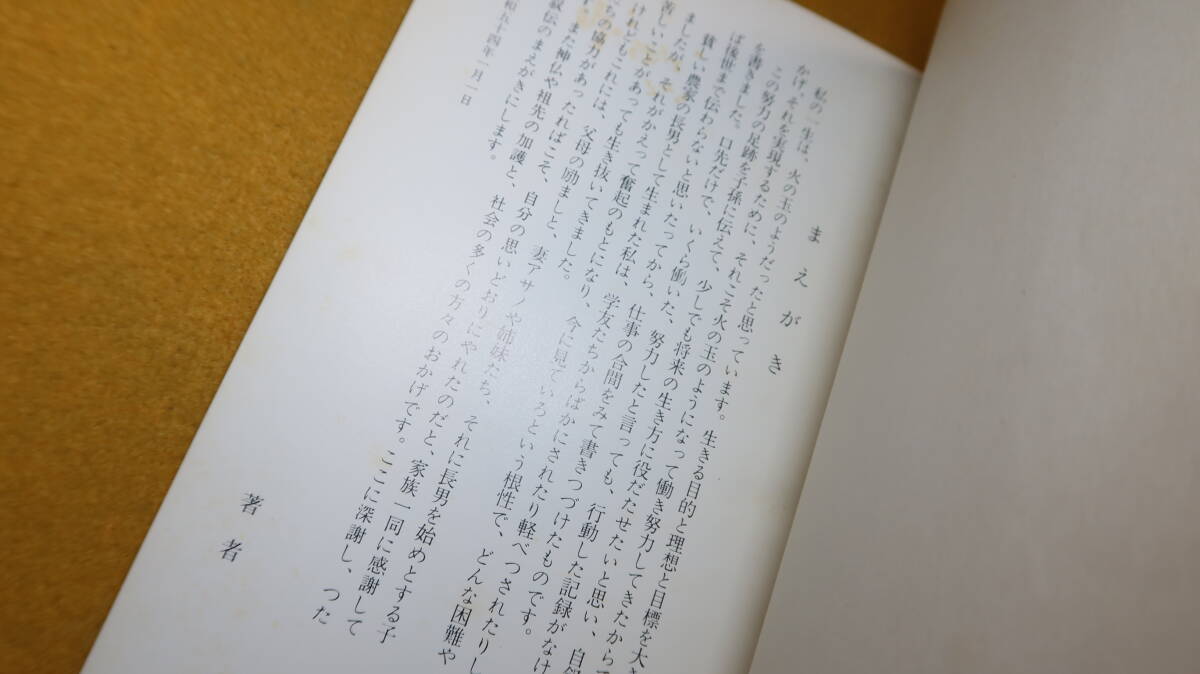 まえがき
私の一生は、火の玉のようだったと思っています。生きる目的と理想と目標を大き
かけ、それを実現するために、それこそ火の玉のようになって働き努力してきたからで
この努力の足跡を子孫に伝えて、少しでも将来の生き方に役だたせたいと思い、自叙
を書きました。口先だけで、いくら働いた、努力したと言っても、行動した記録がなけ
ば後世まで伝わらないと思いたってから、仕事の合間をみて書きつづけたものです。
貧しい農家の長男として生まれた私は、学友たちからばかにされたり軽べつされたりし
ましたが、それがかえって奮起のもとになり、今に見ていろという根性で、どんな困難や
苦しいことがあっても生き抜いてきました。
けれどもこれには、父母の励ましと、妻アサノや姉妹たち、それに長男を始めとする子
ちの協力があったればこそ、自分の思いどおりにやれたのだと、家族一同に感謝して
す。また神仏や祖先の加護と、社会の多くの方々のおかげです。ここに深謝し、つた
叙伝のまえがきにします。
和五十四年一月一日
著者